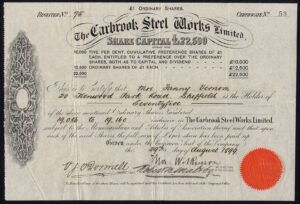 £1 ORDINARY SHARES
REGISTER No 76
CERTIFICATE No 53
The Carbrook Steel Works Limited.
SHARE CAPITAL £22,500
10,000 FIVE PER CENT. CUMULATIVE PREFERENCE SHARES OF £1
EACH, ENTITLED TO A PREFERENCE OVER THE ORDINARY
SHARES, BOTH AS TO CAPITAL AND DIVIDEND £10,000
12,500 ORDINARY SHARES OF £1 EACH £12,500
22,500 £22,500
This is to Certify that Mrs Fanny Vernon
Kenwood Park Road, Sheffield is the Holder of
Seventyfive
of the above-mentioned Ordinary Shares numbered
to in The Carbrook Steel Works Limited.
subject to the Memorandum and Articles of Association thereof and that upon
each of the said Shares the full sum of has been paid up
Given under the Common Seal of the said Company
the 29th day of August 1899